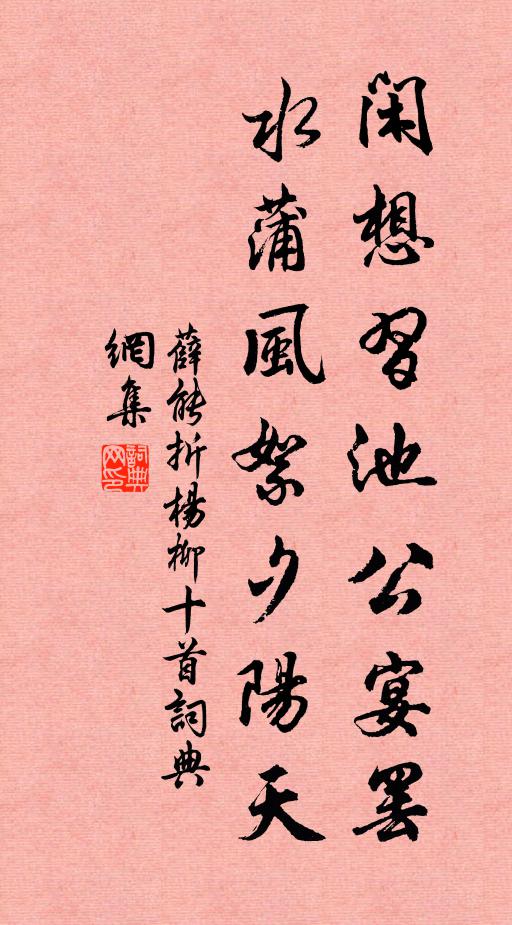 閑想習池公宴罷
水蒲風絮夕陽天
薛能折楊柳十首詞典
網集
詞典
网印